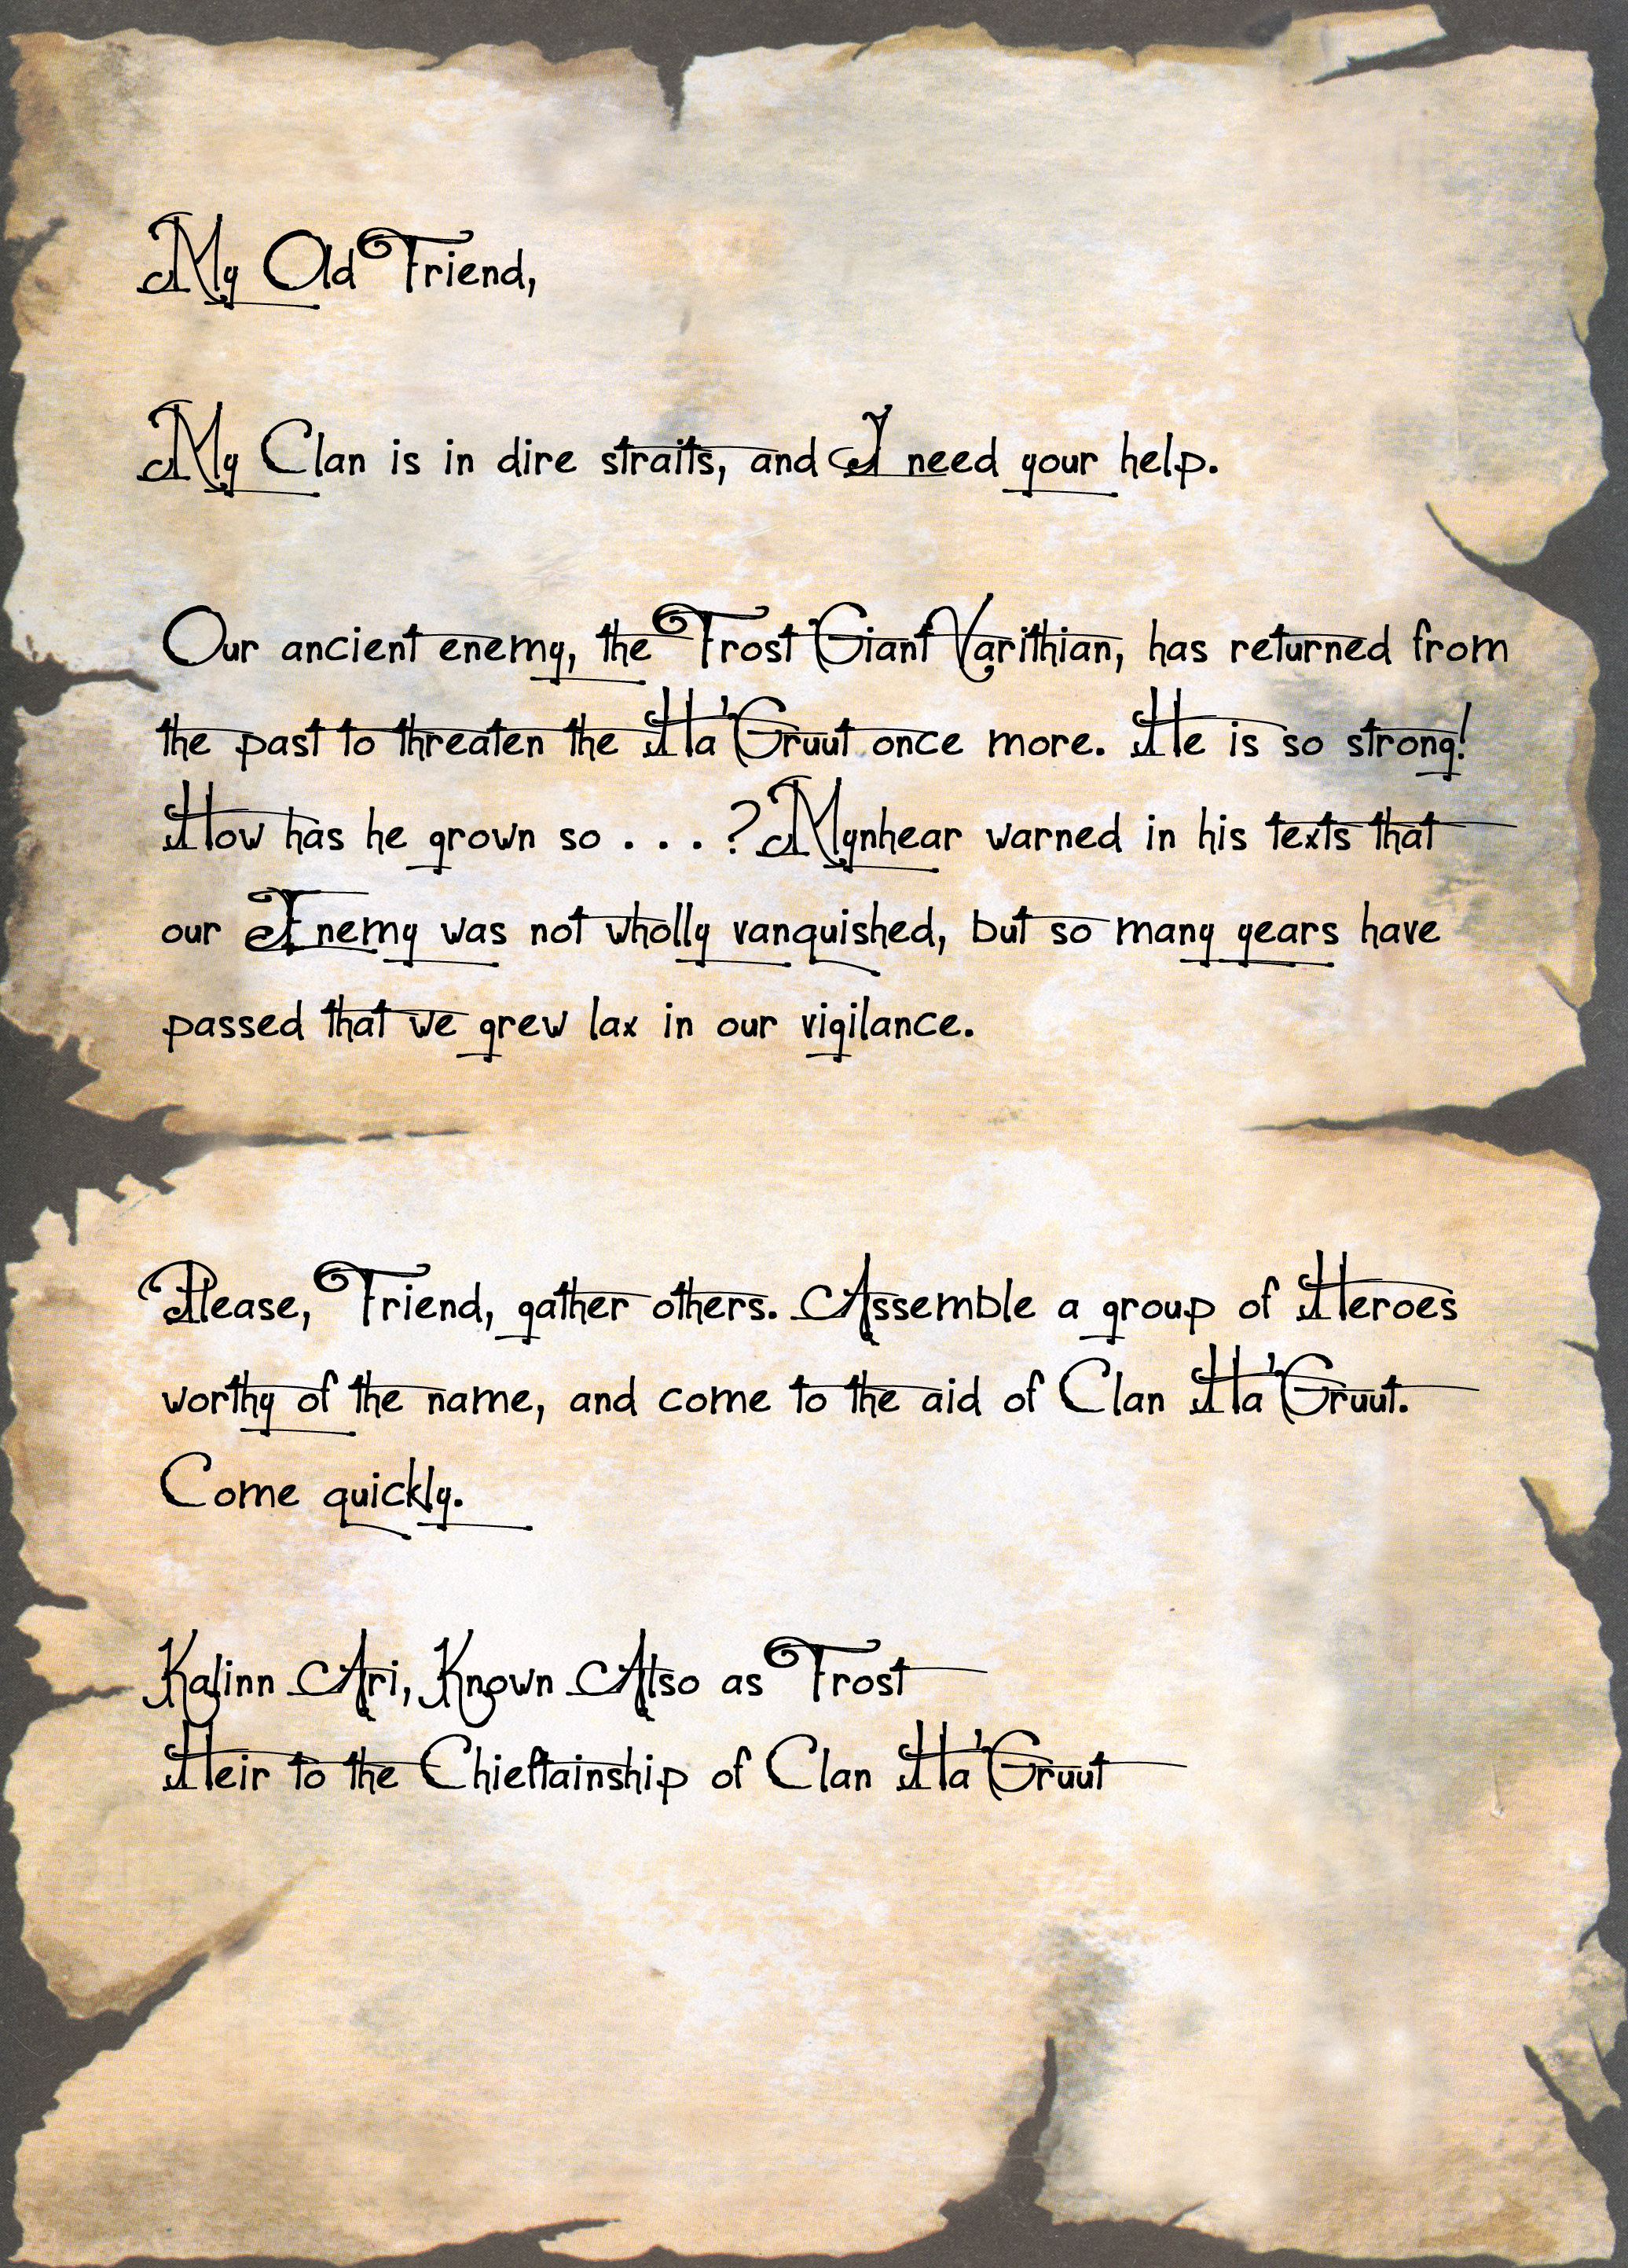 My Old Friend,
My Clan is in dire straits, and I need your help.
Our ancient enemy, the Frost Giant Varithian, has returned from
the past to threaten the Ha'Gruut once more. He is so strong!
How has he grown so . . . ? Mynhear warned in his texts that
our Enemy was not wholly vanquished, but so many years have
passed that we grew lax in our vigilance.
Please, Friend, gather others. Assemble a group of Heroes
worthy of the name, and come to the aid of Clan Ha'Gruut.
Come quickly.
Kalinn Ari, Known Also as Frost
Heir to the Chieftainship of Clan Ha'Gruut